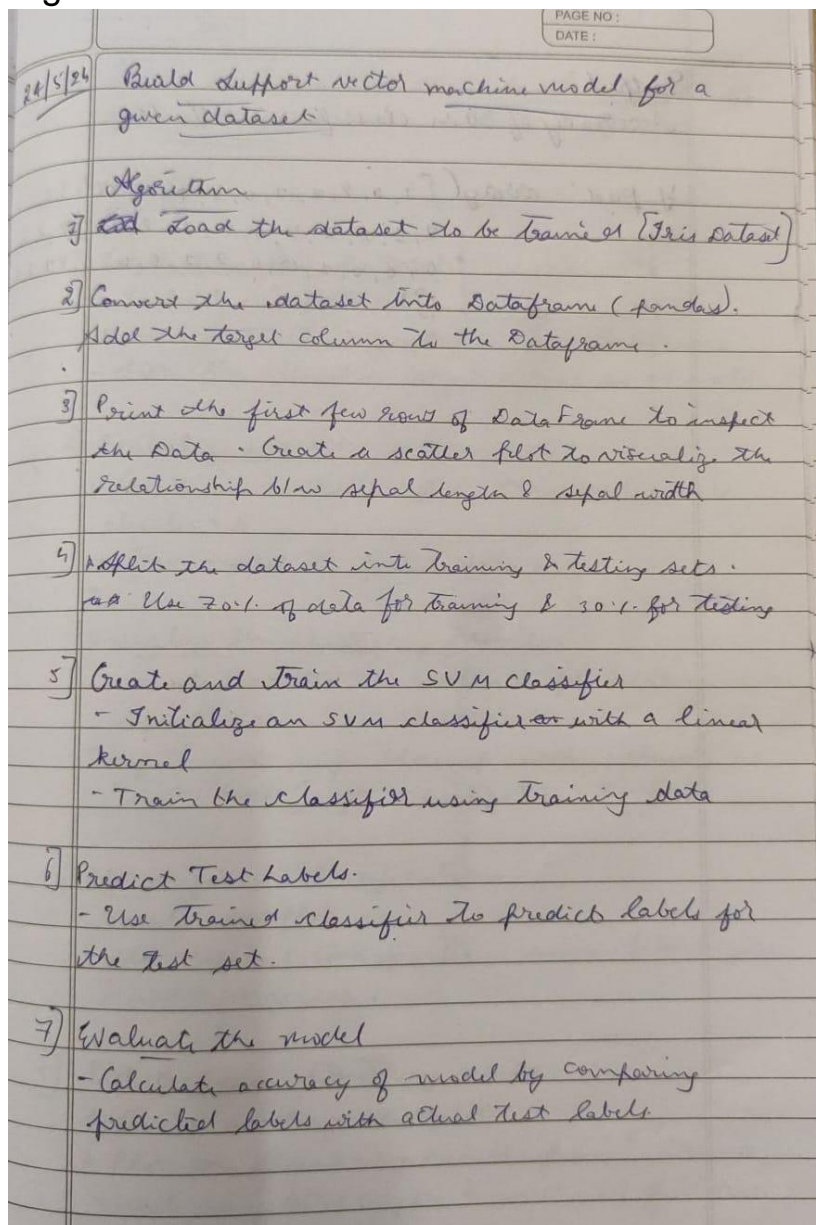 PAGE NO :
DATE :
24/5/24 Build Support vector machine model for a
given dataset
Algorithm
1] Load the dataset to be trained [Iris Dataset]
2] Convert the dataset into Dataframe (pandas).
Add the target column to the Dataframe.
3] Print the first few rows of DataFrame to inspect
the Data. Create a scatter plot to visualize the
relationship b/w sepal length & sepal width
4] Split the dataset into Training & testing sets.
Use 70% of data for training & 30% for testing
5] Create and train the SVM classifier
- Initialize an SVM classifier with a linear
kernel
- Train the classifier using training data
6] Predict Test Labels.
- Use trained classifier to predict labels for
the test set.
7] Evaluate the model
- Calculate accuracy of model by comparing
predicted labels with actual test labels.